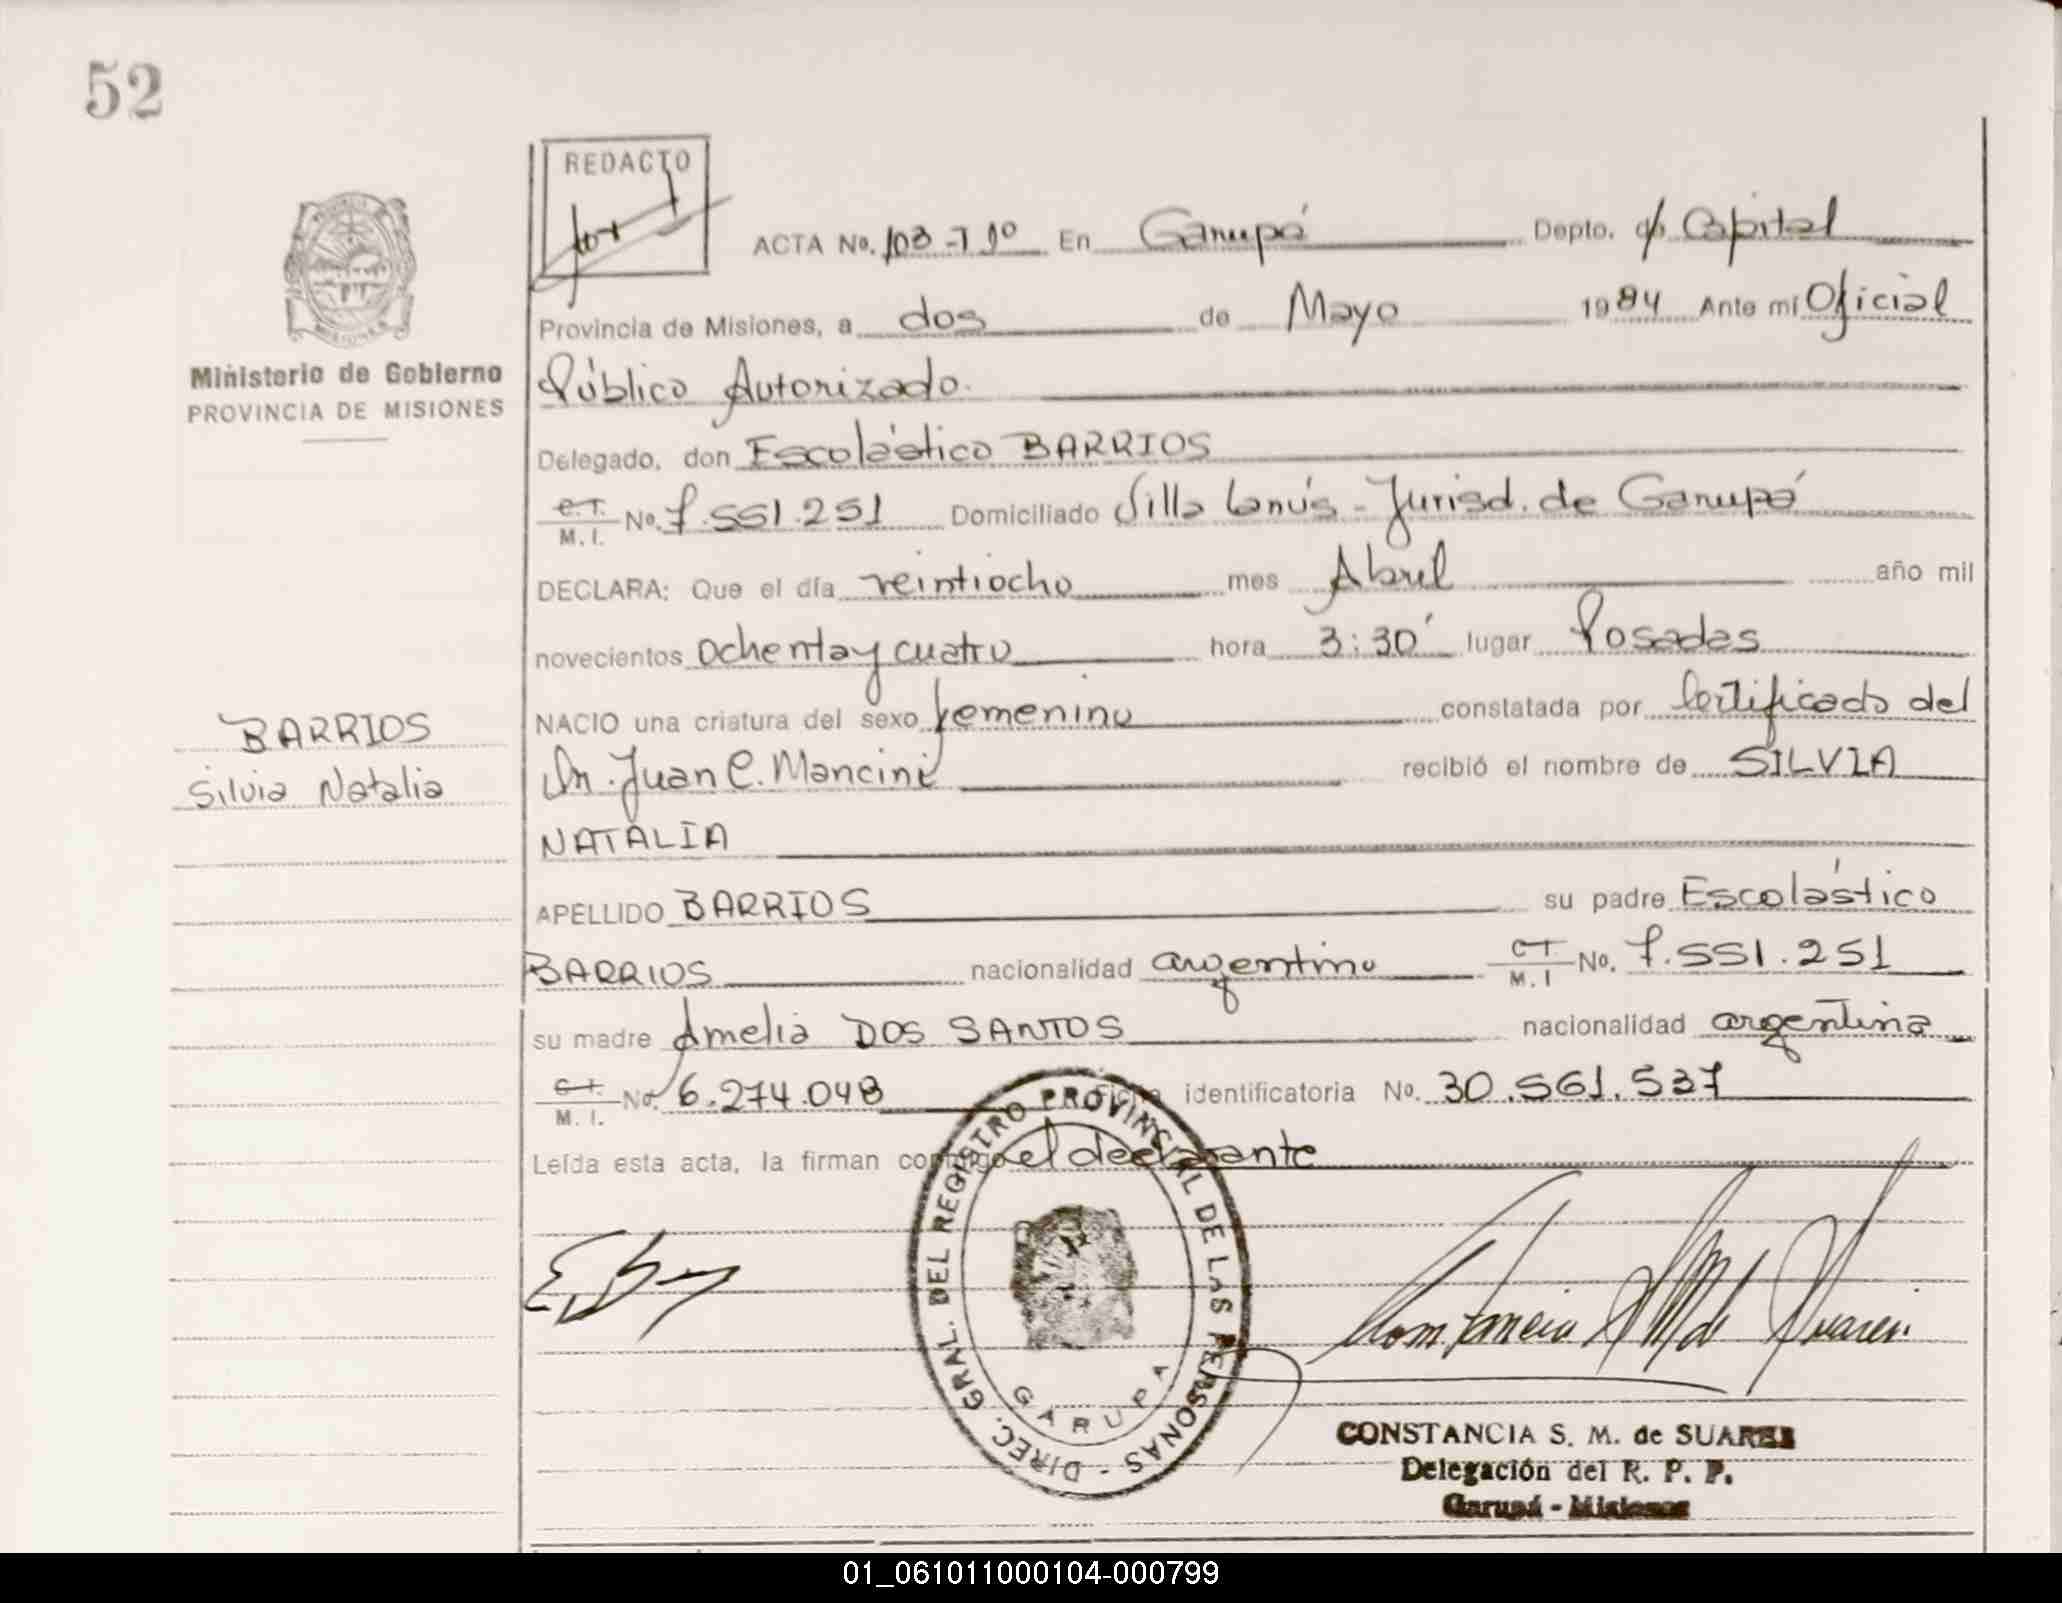 52
REDACTO
ACTA No. 103-Tº1º En Garupá Depto. d/ Capital
Provincia de Misiones, a dos de Mayo 1984 Ante mí Oficial
Ministerio de Gobierno
PROVINCIA DE MISIONES
Público Autorizado.
Delegado, don Escolástico BARRIOS
C.I. M.I. No. 7.551.251 Domiciliado Villa Lanús - Jurisd. de Garupá
DECLARA: Que el día veintiocho mes Abril año mil
novecientos ochenta y cuatro hora 3:30' lugar Posadas
BARRIOS
Silvia Natalia
NACIO una criatura del sexo femenino constatada por Certificado del
Dr. Juan C. Mancini recibió el nombre de SILVIA
NATALIA
APELLIDO BARRIOS su padre Escolástico
BARRIOS nacionalidad argentino C.I. M.I No. 7.551.251
su madre Amelia DOS SANTOS nacionalidad argentina
C.I. M.I. No. 6.274.048 Ficha identificatoria No. 30.561.537
Leída esta acta, la firman conmigo el declarante
DIREC. GRAL. DEL REGISTRO PROVINCIAL DE LAS PERSONAS -
GARUPA
Constancia S M de Suarez
CONSTANCIA S. M. de SUAREZ
Delegación del R. P. P.
Garupá - Misiones
01_061011000104-000799